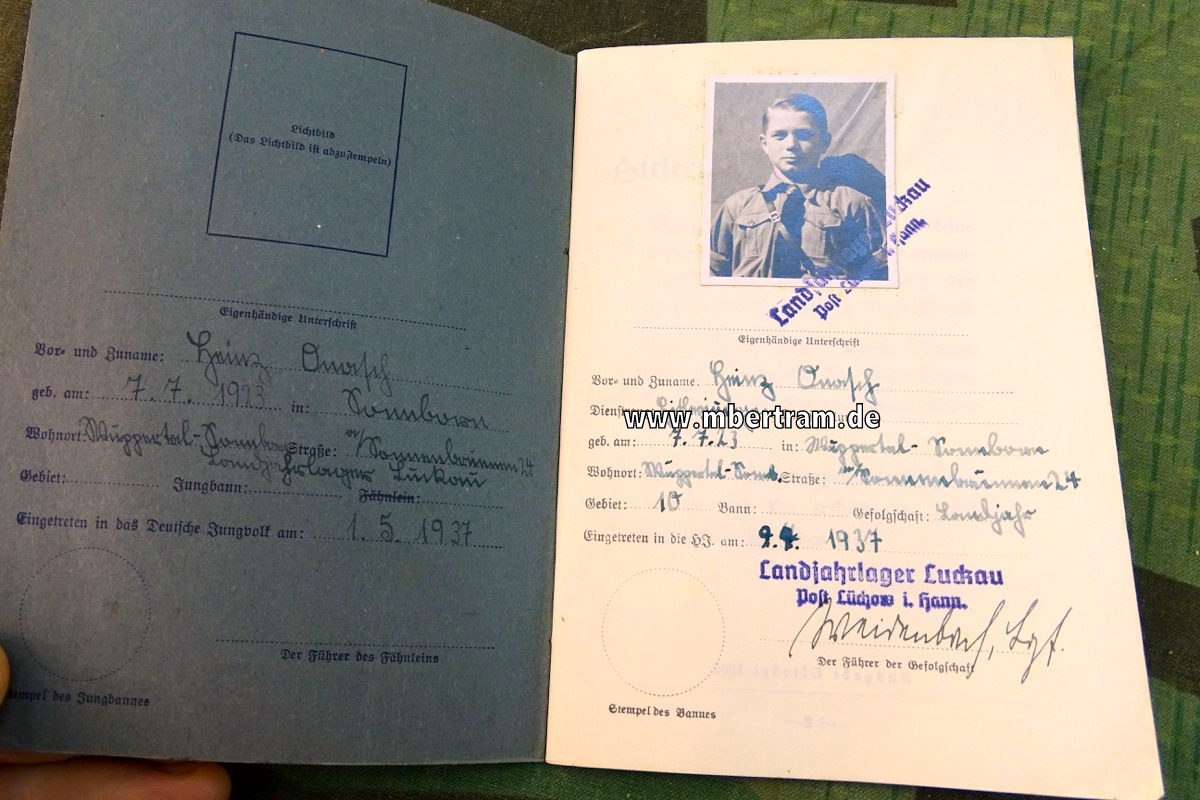 Lichtbild
(Das Lichtbild ist abzustempeln)
Eigenhändige Unterschrift
Vor- und Zuname: Heinz Onasch
geb. am: 7.7. 1923 in: Sonnborn
Wohnort: Wuppertal-Sonnborn Straße: Sonnenbrunnen 24
Landjahrlager Luckau
Gebiet: Jungbann: Fähnlein:
Eingetreten in das Deutsche Jungvolk am: 1.5. 1937
Der Führer des Fähnleins
Stempel des Jungbannes
Landjahrlager Luckau
Post Lüchow i. Hann.
Eigenhändige Unterschrift
Vor- und Zuname: Heinz Onasch
www.mbertram.de
geb. am: 7.7.23 in: Wuppertal-Sonnborn
Wohnort: Wuppertal-Sonnb. Straße: Sonnenbrunnen 24
Gebiet: 10 Bann: Gefolgschaft: Landjahr
Eingetreten in die HJ. am: 1937
Landjahrlager Luckau
Post Lüchow i. Hann.
Weidenbach, Lgf.
Der Führer der Gefolgschaft
Stempel des Bannes